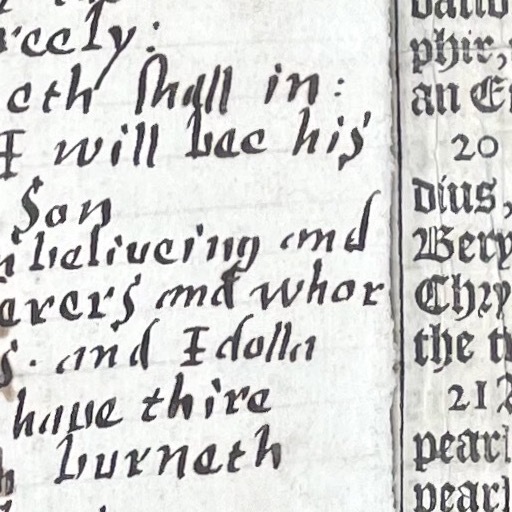 reely:
eth shall in:
I will bee his
Son
nbeliueing and
erers and whor
s. and Idolla
haue thire
h burneth
phir,
an E
20
dius,
Bery
Chry
the t
21
pearl
pearl